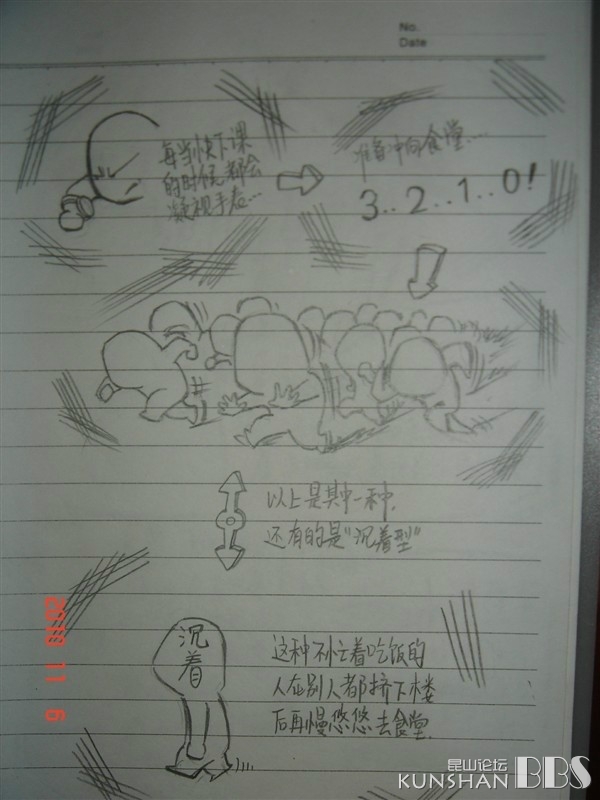 No.
Date
每当快下课
的时候,都会
凝视手表...
准备冲向食堂....
3..2..1..0!
以上是其中一种,
还有的是"沉着型"
沉着
这种不忙着吃饭的
人在别人都挤下楼
后再慢悠悠去食堂.
2010 11 6
昆山论坛
KUNSHAN BBS